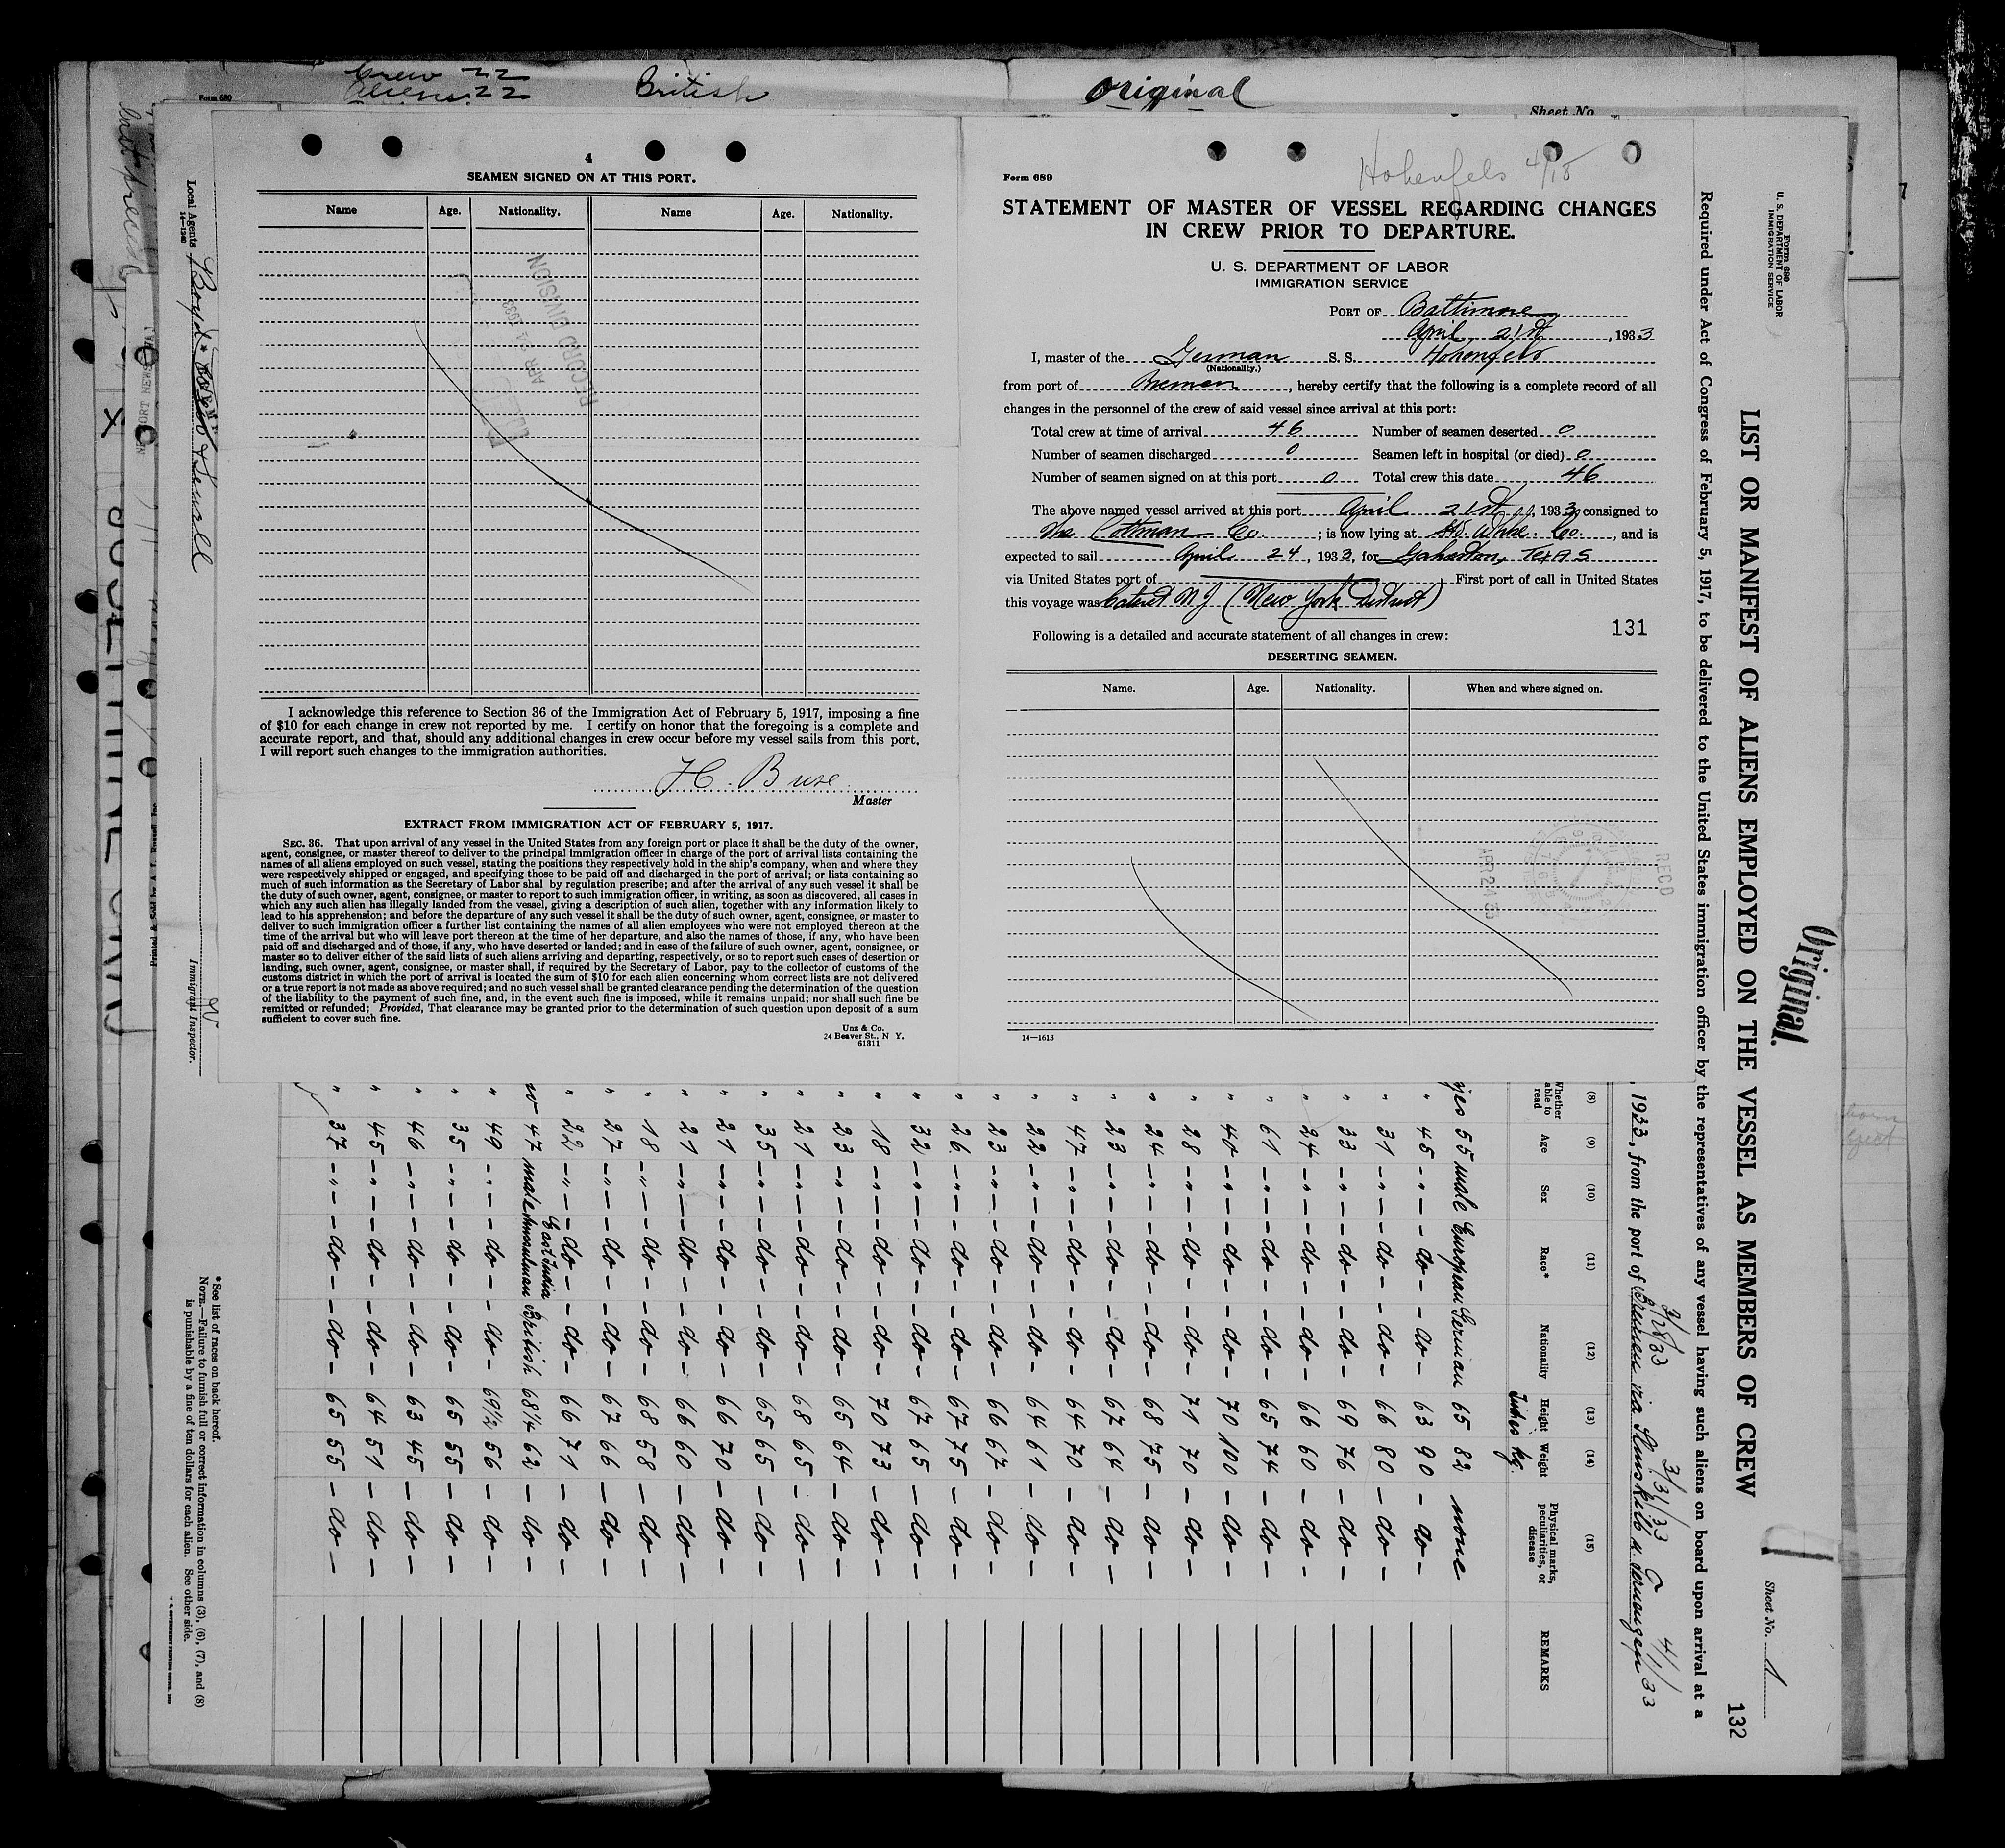 Crew 22
Aliens 22
British
Original
Form 680
Sheet No.
4
SEAMEN SIGNED ON AT THIS PORT.
Name Age. Nationality. Name Age. Nationality.
RECORD DIVISION
APR 24 1933
I acknowledge this reference to Section 36 of the Immigration Act of February 5, 1917, imposing a fine
of $10 for each change in crew not reported by me. I certify on honor that the foregoing is a complete and
accurate report, and that, should any additional changes in crew occur before my vessel sails from this port,
I will report such changes to the immigration authorities.
H. Buse
Master
EXTRACT FROM IMMIGRATION ACT OF FEBRUARY 5, 1917.
SEC. 36. That upon arrival of any vessel in the United States from any foreign port or place it shall be the duty of the owner,
agent, consignee, or master thereof to deliver to the principal immigration officer in charge of the port of arrival lists containing the
names of all aliens employed on such vessel, stating the positions they respectively hold in the ship's company, when and where they
were respectively shipped or engaged, and specifying those to be paid off and discharged in the port of arrival; or lists containing so
much of such information as the Secretary of Labor shal by regulation prescribe; and after the arrival of any such vessel it shall be
the duty of such owner, agent, consignee, or master to report to such immigration officer, in writing, as soon as discovered, all cases in
which any such alien has illegally landed from the vessel, giving a description of such alien, together with any information likely to
lead to his apprehension; and before the departure of any such vessel it shall be the duty of such owner, agent, consignee, or master to
deliver to such immigration officer a further list containing the names of all alien employees who were not employed thereon at the
time of the arrival but who will leave port thereon at the time of her departure, and also the names of those, if any, who have been
paid off and discharged and of those, if any, who have deserted or landed; and in case of the failure of such owner, agent, consignee, or
master so to deliver either of the said lists of such aliens arriving and departing, respectively, or so to report such cases of desertion or
landing, such owner, agent, consignee, or master shall, if required by the Secretary of Labor, pay to the collector of customs of the
customs district in which the port of arrival is located the sum of $10 for each alien concerning whom correct lists are not delivered
or a true report is not made as above required; and no such vessel shall be granted clearance pending the determination of the question
of the liability to the payment of such fine, and, in the event such fine is imposed, while it remains unpaid; nor shall such fine be
remitted or refunded; Provided, That clearance may be granted prior to the determination of such question upon deposit of a sum
sufficient to cover such fine.
Unz & Co.
24 Beaver St., N Y.
61311
Hohenfels 4/18
Form 689
STATEMENT OF MASTER OF VESSEL REGARDING CHANGES
IN CREW PRIOR TO DEPARTURE.
U. S. DEPARTMENT OF LABOR
IMMIGRATION SERVICE
PORT OF Baltimore
April 21st, 1933
I, master of the German S. S. Hohenfels
(Nationality.)
from port of Bremen, hereby certify that the following is a complete record of all
changes in the personnel of the crew of said vessel since arrival at this port:
Total crew at time of arrival 46 Number of seamen deserted 0
Number of seamen discharged 0 Seamen left in hospital (or died) 0
Number of seamen signed on at this port 0 Total crew this date 46
The above named vessel arrived at this port April 21st, 1933 consigned to
The Cottman Co. ; is now lying at Co., and is
expected to sail April 24, 1933, for Galveston, Texas
via United States port of First port of call in United States
this voyage was Carteret NJ (New York District)
131
Following is a detailed and accurate statement of all changes in crew:
DESERTING SEAMEN.
Name. Age. Nationality. When and where signed on.
APR 24 33
REC'D
14—1613
Form 680
U. S. DEPARTMENT OF LABOR
IMMIGRATION SERVICE
Original.
Sheet No. 1
132
LIST OR MANIFEST OF ALIENS EMPLOYED ON THE VESSEL AS MEMBERS OF CREW
Required under Act of Congress of February 5, 1917, to be delivered to the United States immigration officer by the representatives of any vessel having such aliens on board upon arrival at a
3/28/33 3/31/33 4/1/33
, 1933, from the port of Bremen via
(8) (9) (10) (11) (12) (13) (14) (15)
Whether able to read Age Sex Race* Nationality Height Weight Physical marks, peculiarities, or disease REMARKS
Inches kg.
yes 55 male European German 65 82 none
" 45 - " - - do - - do - 63 90 - do -
" 31 - " - - do - - do - 66 80 - do -
" 33 - " - - do - - do - 69 76 - do -
" 24 - " - - do - - do - 66 60 - do -
" 61 - " - - do - - do - 65 74 - do -
" 40 - " - - do - - do - 70 100 - do -
" 28 - " - - do - - do - 71 70 - do -
" 24 - " - - do - - do - 68 75 - do -
" 23 - " - - do - - do - 67 64 - do -
" 47 - " - - do - - do - 64 70 - do -
" 22 - " - - do - - do - 64 61 - do -
" 23 - " - - do - - do - 66 67 - do -
" 26 - " - - do - - do - 67 75 - do -
" 32 - " - - do - - do - 67 65 - do -
" 18 - " - - do - - do - 70 73 - do -
" 23 - " - - do - - do - 65 64 - do -
" 21 - " - - do - - do - 68 65 - do -
" 35 - " - - do - - do - 65 65 - do -
" 21 - " - - do - - do - 66 70 - do -
" 21 - " - - do - - do - 66 60 - do -
" 18 - " - - do - - do - 68 58 - do -
" 27 - " - - do - - do - 67 66 - do -
" 22 - " - - do - - do - 66 71 - do -
East India
no 47 male Musulman British 68 1/4 62 - do -
" 49 - " - - do - - do - 69 1/2 56 - do -
" 35 - " - - do - - do - 65 55 - do -
" 46 - " - - do - - do - 63 45 - do -
" 45 - " - - do - - do - 64 51 - do -
" 37 - " - - do - - do - 65 55 - do -
*See list of races on back hereof.
NOTE.—Failure to furnish full or correct information in columns (3), (6), (7), and (8)
is punishable by a fine of ten dollars for each alien. See other side.
Local Agents Boyd & Sewell
14—1240
Immigrant Inspector.